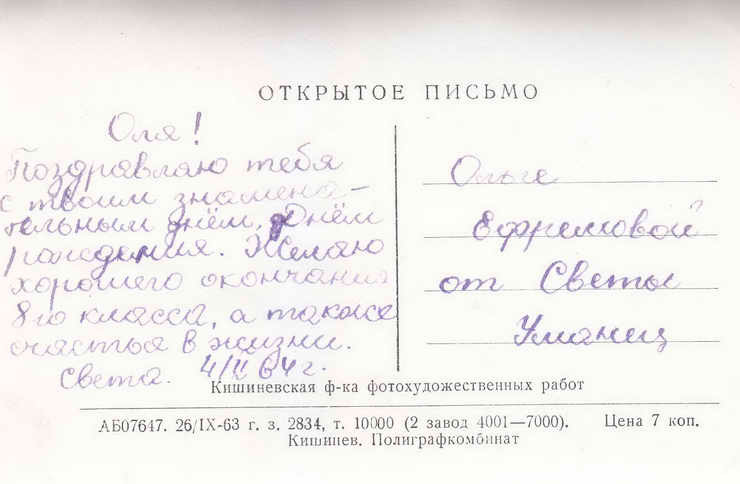 ОТКРЫТОЕ ПИСЬМО
Оля!
Поздравляю тебя
с твоим знамена-
тельным днём, Днём
рождения. Желаю
хорошего окончания
8го класса, а также
счастья в жизни.
Света. 4/II 64 г.
Ольге
Ефремовой
от Светы
Уманец
Кишиневская ф-ка фотохудожественных работ
АБ07647. 26/IX-63 г. з. 2834, т. 10000 (2 завод 4001—7000). Цена 7 коп.
Кишинев. Полиграфкомбинат